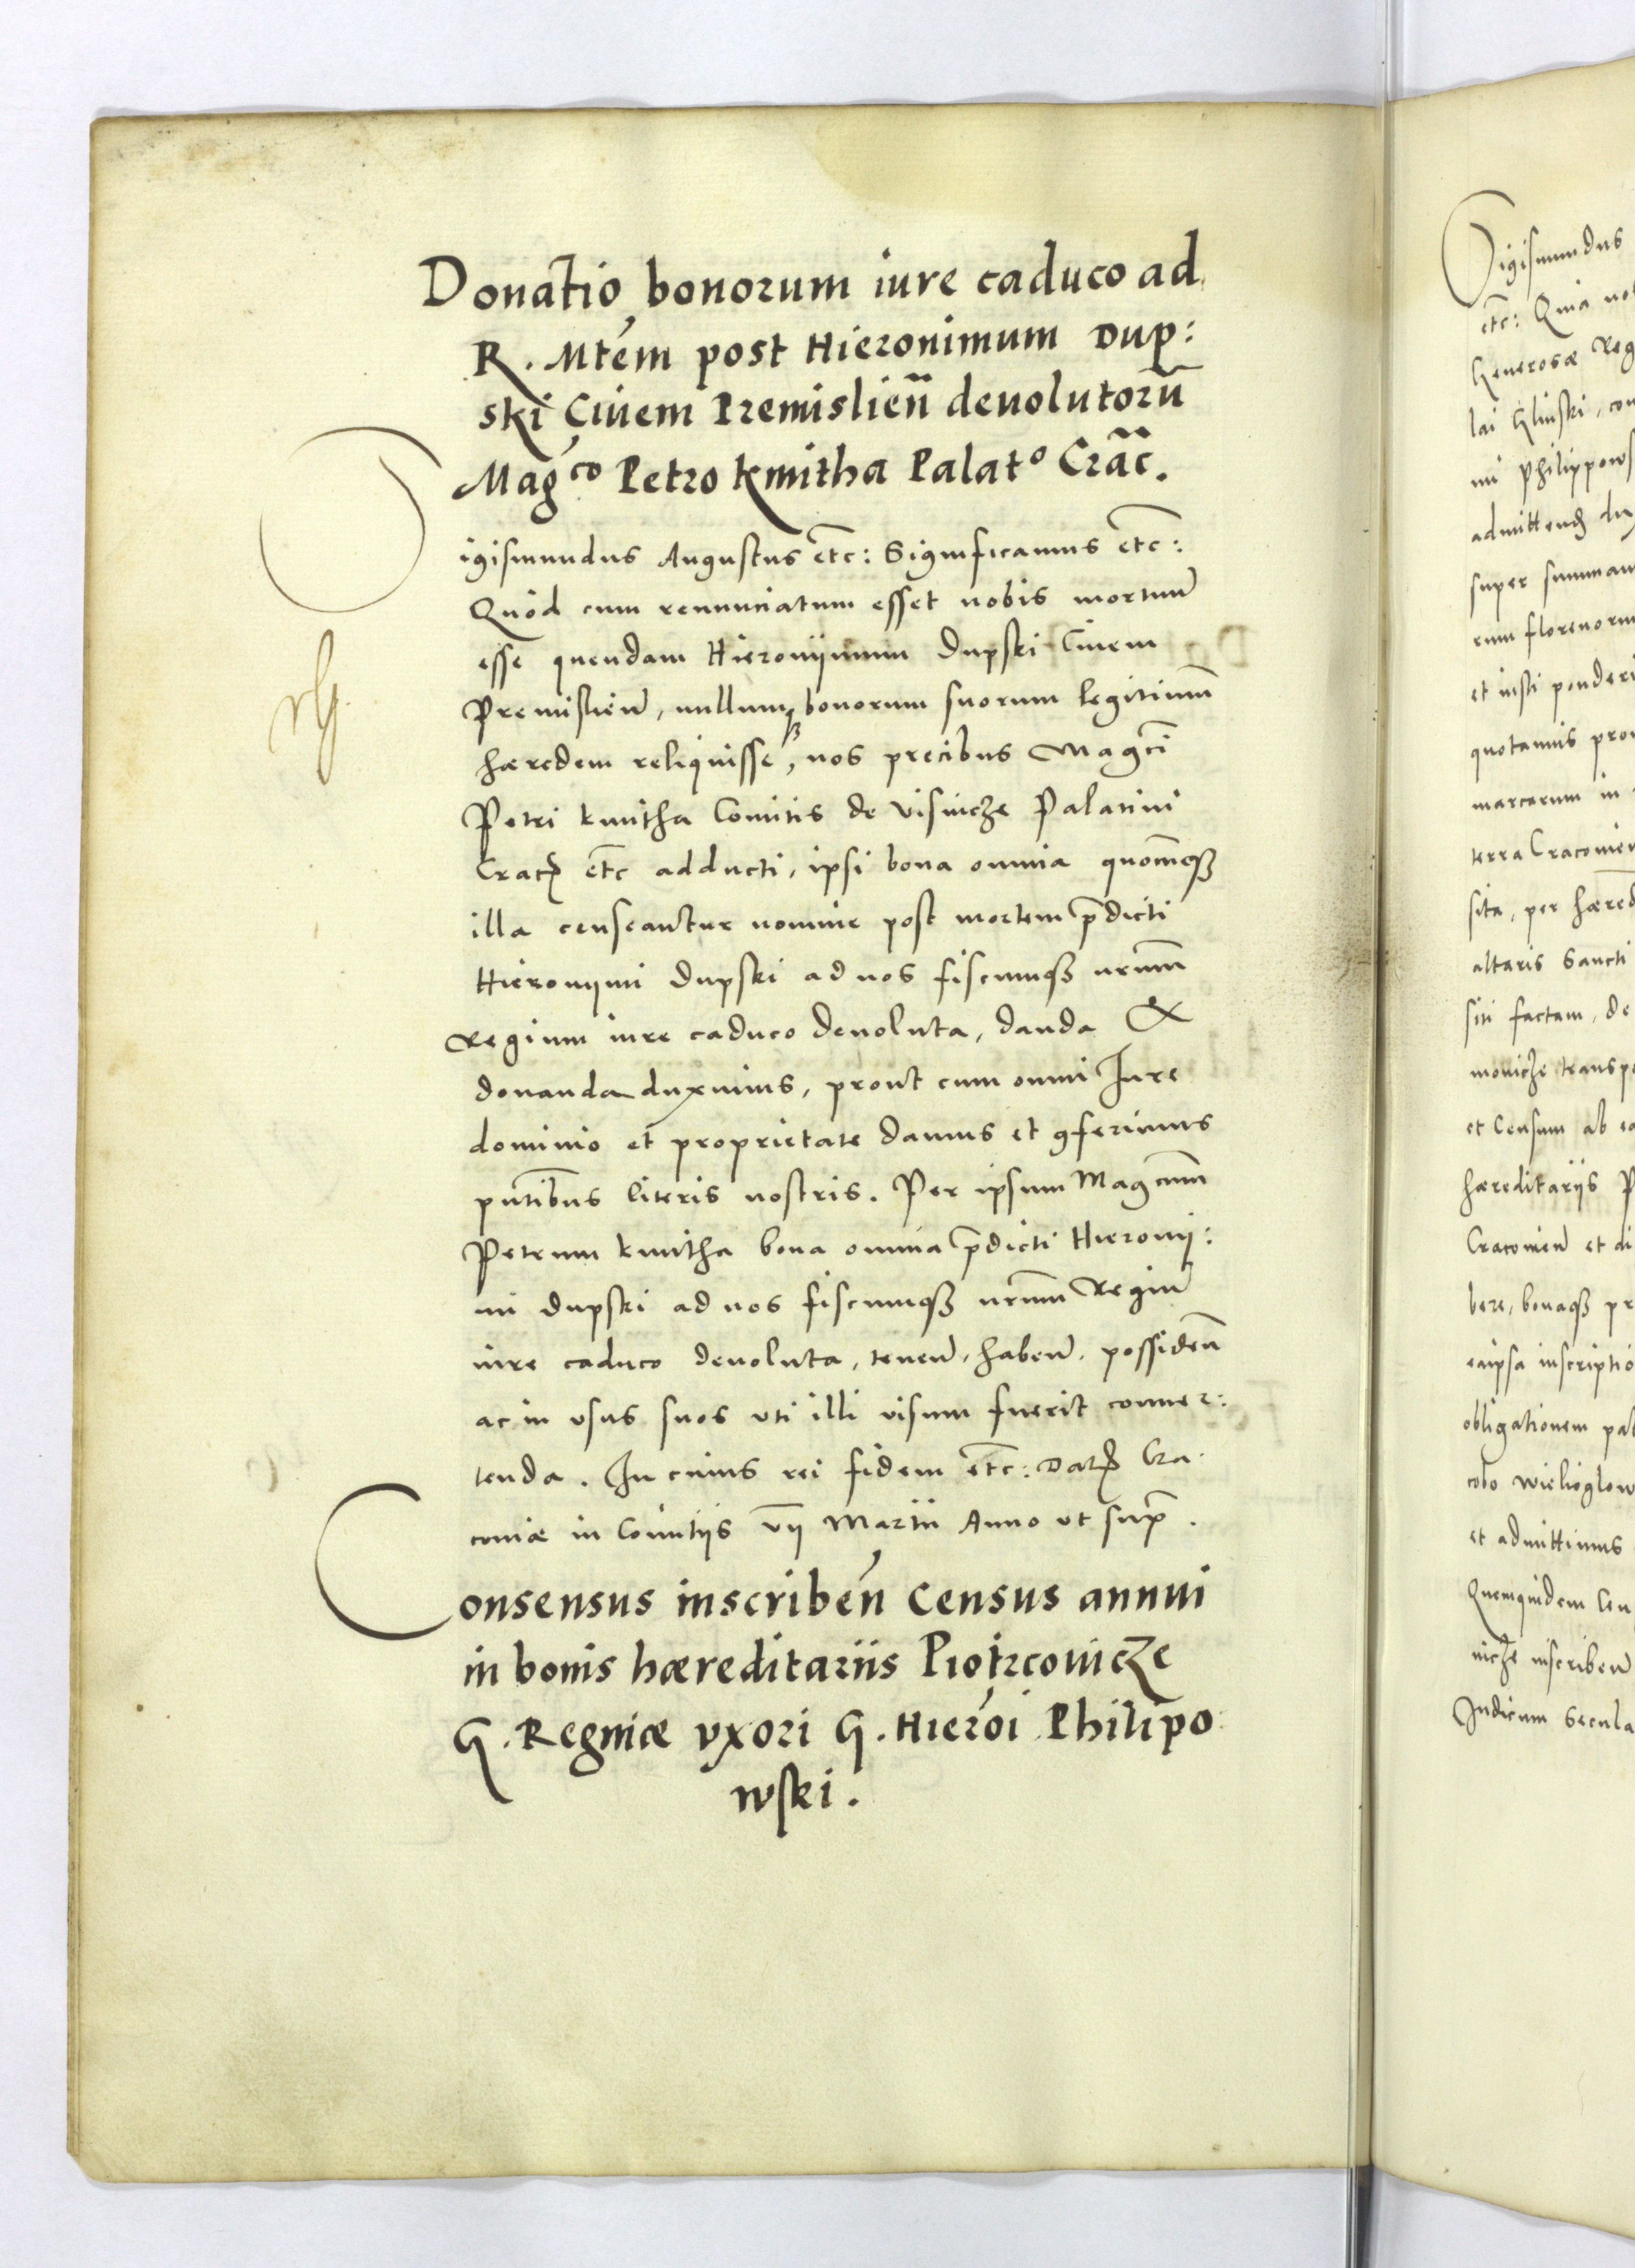 Donatio bonorum iure caduco ad
R. Mtem post Hieronimum Dup:
ski Civem Premislien̄ devolutorū
Mag^co Petro Kmitha Palat^o Crac̄.
Sigismundus Augustus etc: Significamus etc:
Quod cum renunciatum esset nobis mortuū
esse quendam Hieronijmum Dupski Civem
Premislien̄, nullumqꝫ bonorum suorum legitimū
hæredem reliquisse, nos precibus Mag^ci
Petri Kmitha Comitis de Visnicze Palatini
Crac̄ etc adducti, ipsi bona omnia quocūqꝫ
illa censeantur nomine post mortem p̄dicti
Hieronijmi Dupski ad nos fiscumqꝫ nr̄um
Regium iure caduco devoluta, danda &
donanda duximus, prout cum omni Iure
dominio et proprietate damus et ꝯferimus
pn̄tibus literis nostris. Per ipsum Mag^cum
Petrum Kmitha bona omnia p̄dicti Hieronij:
mi Dupski ad nos fiscumqꝫ nr̄um Regiū
iure caduco devoluta, tenen̄. haben̄. possiden̄
ac in usus suos uti illi visum fuerit conver:
tenda. In cuius rei fidem etc: Dat̄ Cra
coviæ in Comitijs vij Martii Anno ut sup̄.
Consensus inscriben̄ Census annui
in bonis hæreditariis Piotrcovicze
G. Reginæ uxori G. Hieroī Philipo
wski.
Sigismundus
etc: Quia
Generosæ Reg
lai Glinski, con
mi Philippows
admitten̄
super summam
rum florenorum
et iusti ponderi
quotannis prov
marcarum in
terra Cracovien
sita, per hæred
altaris Sancti
siti factam, de
movicze transp
et Censum ab ea
hæreditarijs P
Cracovien̄ et di
bere, bonaqꝫ pr
eaipsa inscriptio
obligationem pat
cobo Wielioglow
et admittimus
Quemquidem Cen
vicze inscriben̄
Iudicum Secula